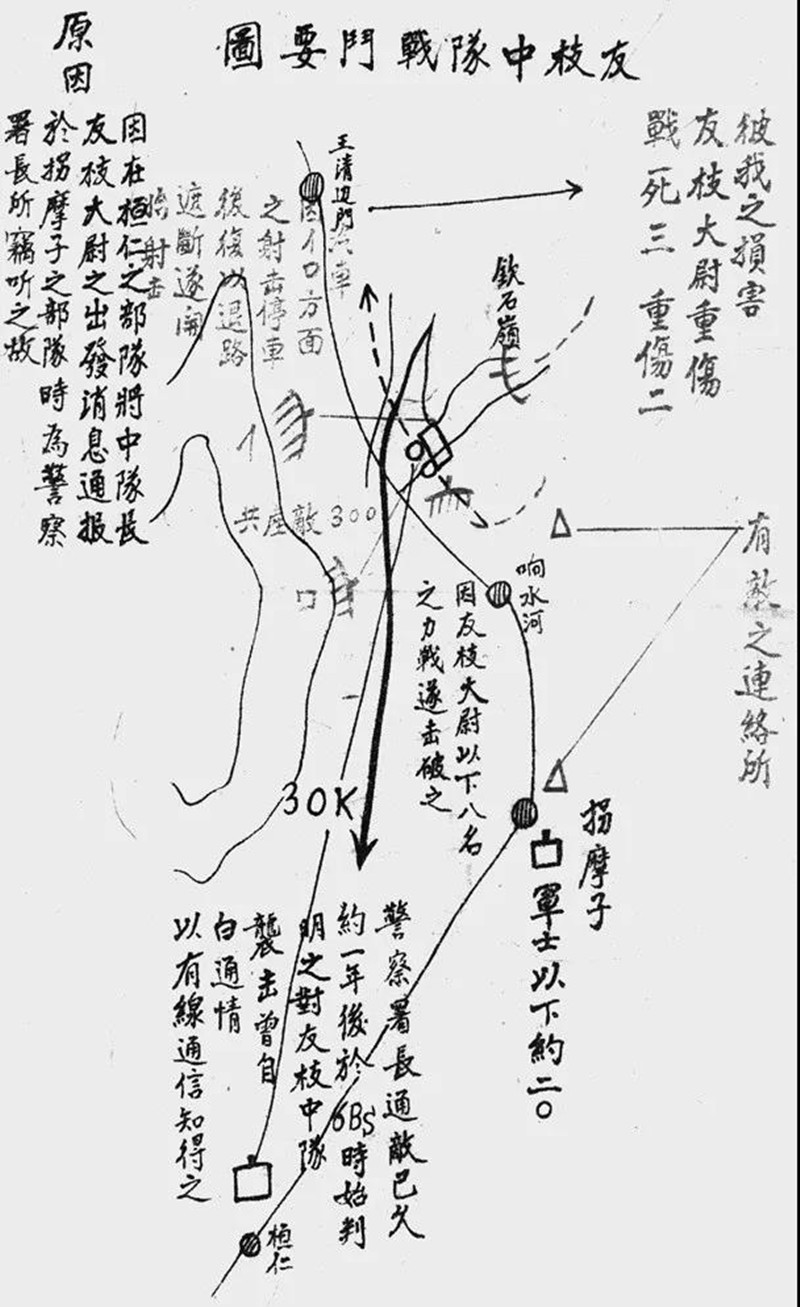 友枝中隊戰鬥要圖
彼我之損害
友枝大尉重傷
戰死三 重傷二
有敵之連絡所
王清边門
欽石嶺
响水河
因友枝大尉以下八名
之力戰遂击破之
拐摩子
軍士以下約二〇
因イロ方面
之射击停車
後復以退路
遮斷遂開
始射击
汽車
イ
共産敵300
ロ
30K
警察署長通敵已久
約一年後於6BS時始判
明之對友枝中隊
襲击曾自
白通情
以有線通信知得之
桓仁
原因
因在桓仁之部隊將中隊長
友枝大尉之出發消息通报
於拐摩子之部隊時為警察
署長所竊听之故